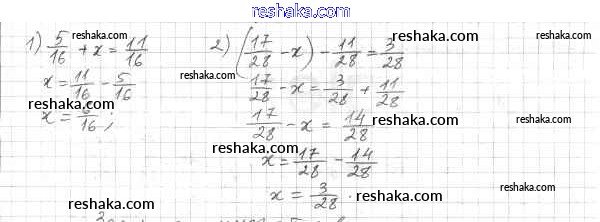 reshaka.com
1) 5/16 + x = 11/16
x = 11/16 - 5/16
x = 6/16;
2) (17/28 - x) - 11/28 = 3/28
17/28 - x = 3/28 + 11/28
17/28 - x = 14/28
x = 17/28 - 14/28
x = 3/28.
reshaka.com
reshaka.com
reshaka.com
reshaka.com
reshaka.com
reshaka.com
reshaka.com
reshaka.com
reshaka.com
reshaka.com